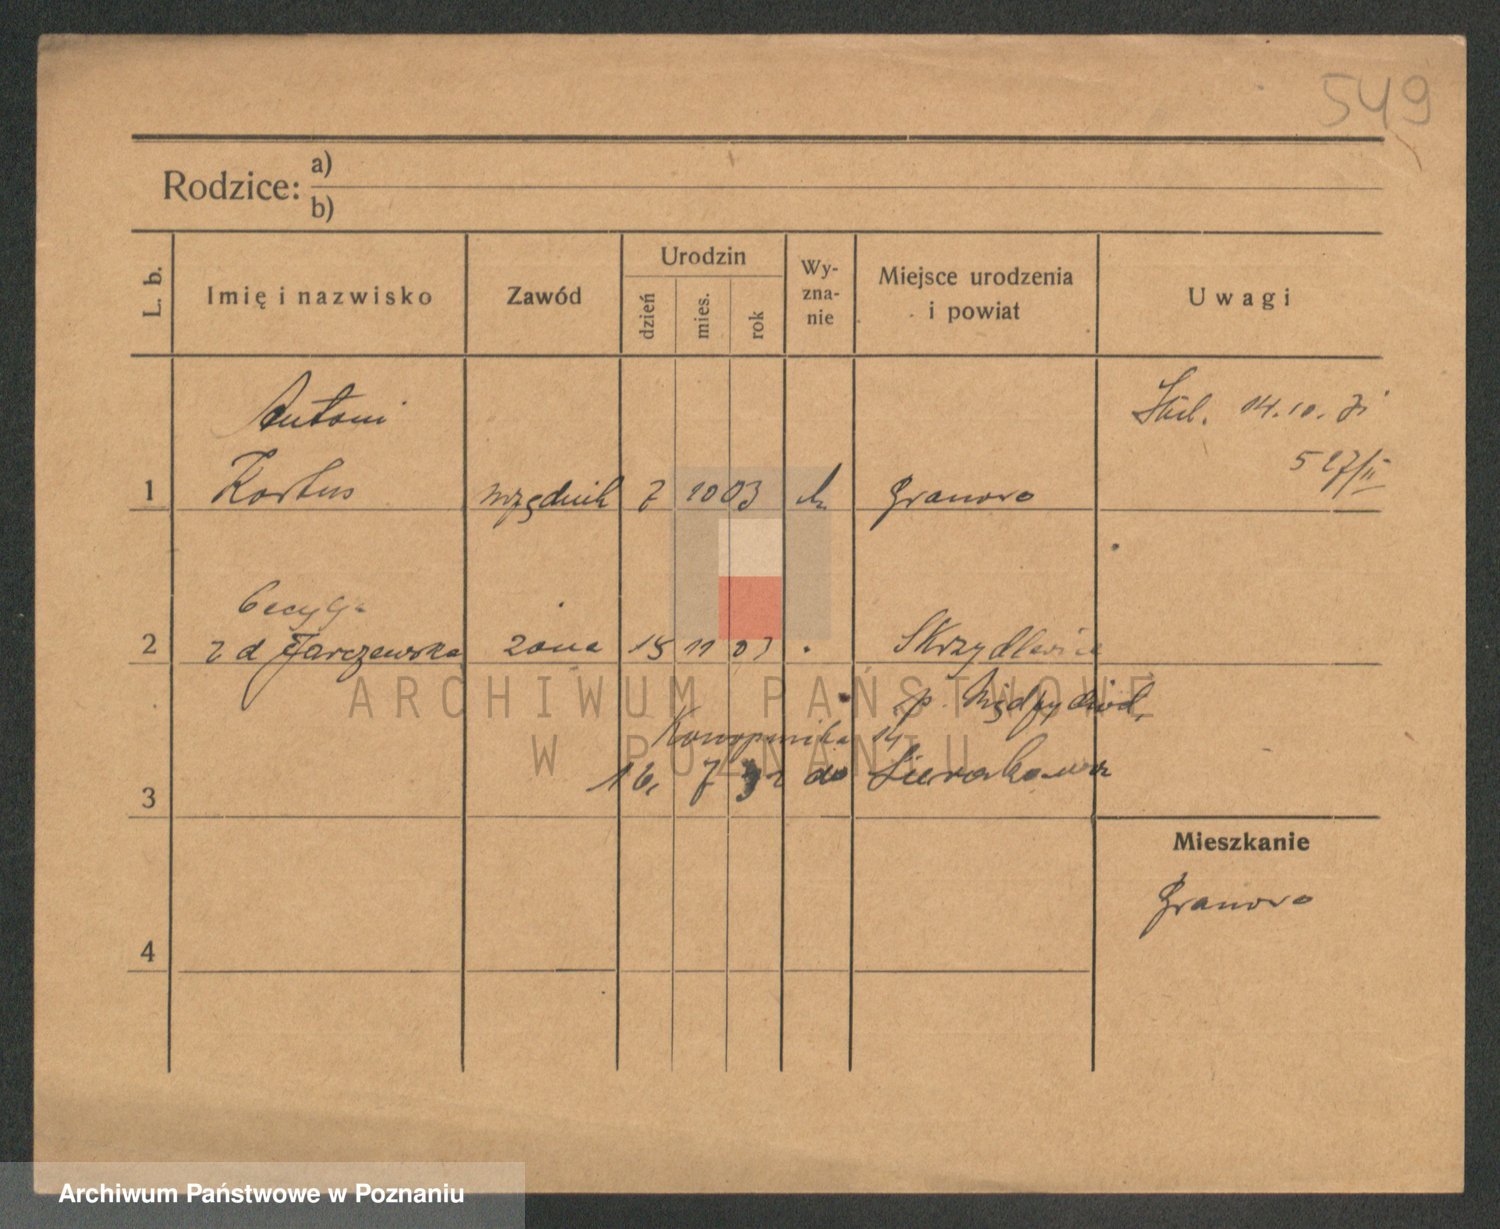 549
Rodzice: a)
b)
L. b.
Imię i nazwisko
Zawód
Urodzin
dzień
mies.
rok
Wy-
zna-
nie
Miejsce urodzenia
i powiat
Uwagi
Antoni
14.10. 31
527/II
1 Kortus urzędnik 7 10 03 k Granowo
Cecylja
2 z d Jarczewska żona 15 11 03 Skrzydlewice
p. Międzychód
14
16. 7 32 do Sierakowa
3
Mieszkanie
Granowo
4
ARCHIWUM PAŃSTWOWE
W POZNANIU
Archiwum Państwowe w Poznaniu